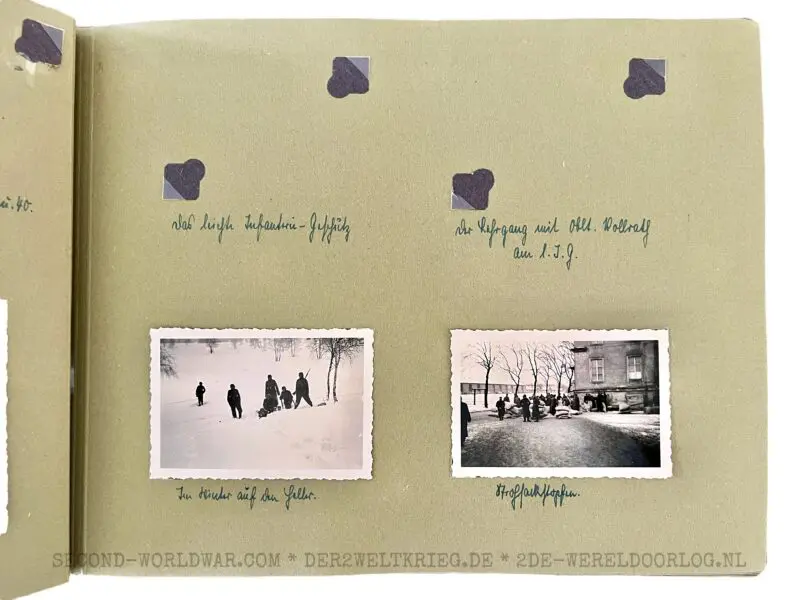 u. 40.
Das leichte Infanterie-Geschütz
Der Lehrgang mit Oblt. Vollrath
am l. I. G.
Im Winter auf den Heller.
Strohsackstopfen.
SECOND-WORLDWAR.COM * DER2WELTKRIEG.DE * 2DE-WERELDOORLOG.NL